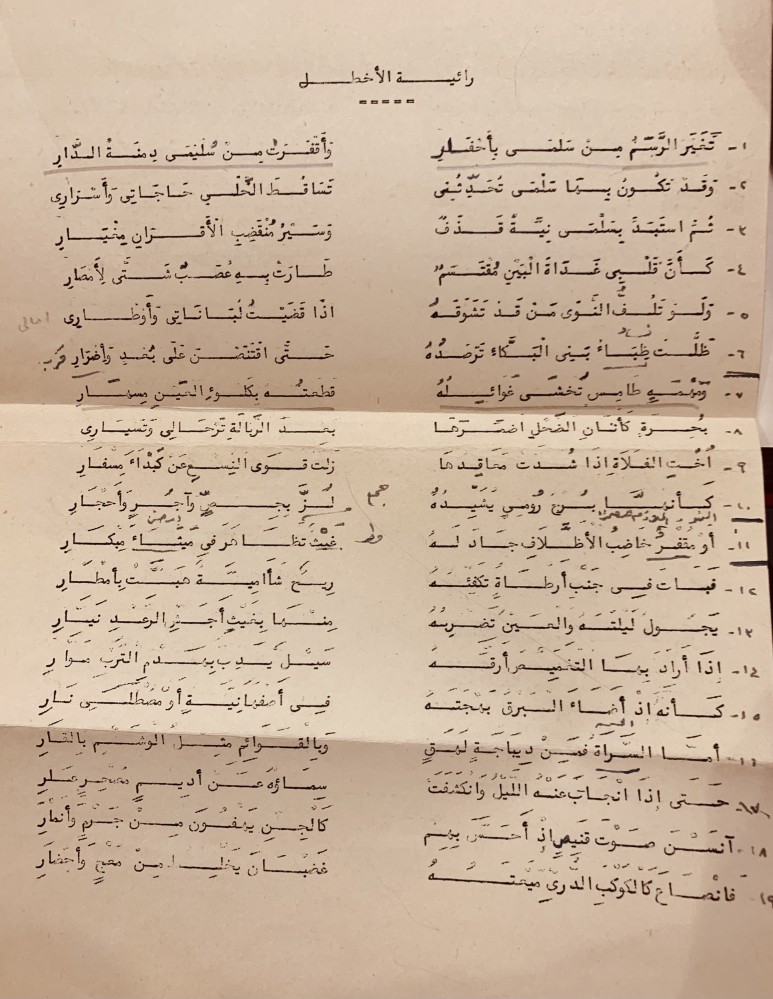 رائيـــة الأخطـــل
١- تَغَيَّرَ الرَّسْمُ مِـنْ سَلمَـى بِأَحْفَـارِ وَأَقْفَـرَتْ مِـنْ سُلَيْمَـى دِمْنَـةُ الـدَّارِ
٢- وَقَـدْ تَكُـونُ بِـهَا سَلْمَى تُحَدِّثُـنِى تَسَاقُـطَ الحَلْـي حَاجَاتِى وَأَسْرَارِى
٣- ثُـمَّ اسْتَبَـدَّ بِسَلْمَـى نِيَّـةٌ قَـذَفٌ وَسَيْـرُ مُنْقَضِبِ الأَقْـرَانِ مِغْيَـارِ
٤- كَـأَنَّ قَلْبِـى غَـدَاةَ البَيْنِ مُقْتَسَـمٌ طَـارَتْ بِـهِ عُصَـبٌ شَـتَّى لِأَمْصَارِ
٥- وَلَـوْ تَلُـفُّ النَّوَى مَـنْ قَـدْ تَشَوَّقَـهُ اذَا قَضَيْـتُ لُبَـانَاتِى وَأَوْطَـارِى
امالى
٦- ظَلَّـتْ ظِبَـاءُ بَـنِى البَـكَّاءِ تَرْصُدُهُ حَـتَّى اقْتُنِصْـنَ عَلَى بُعْـدٍ وَأَضْرَارِ
٧- وَمَهْمَـهٍ طَامِـسٍ تُخْشَـى غَوَائِلُـهُ قَطَعْتُـهُ بِكَلُـوءِ العَيْـنِ مِسْهَـارِ
٨- بِحُـرَّةٍ كَأَتَـانِ الضَّحْلِ أَضْمَـرَهَا بَعْـدَ الرَّبَالَةِ تَرْحَالِى وَتَسْيَارِى
٩- أُخْـتِ الفَـلَاةِ إِذَا شُـدَّتْ مَعَاقِدُهَا زَلَّتْ قُـوَى النِّسْعِ عَنْ كَبْدَاءَ مِسْفَـارِ
١٠- كَـأَنَّهَـا بُـرْجُ رُومِـيٍّ يُشَيِّـدُهُ لُـزَّ بِجَـصٍّ وَآجُـرٍ وَأَحْجَـارِ
١١- أَوْ مُقْفِـرٌ خَاضِبُ الأَظْـلَافِ جَـادَ لَـهُ غَيْثٌ تَظَـاهَرَ فِي مَيْثَـاءَ مِبْكَـارِ
١٢- فَبَـاتَ فِـى جَنْبِ أَرْطَـاةٍ تُكَفِّئُـهُ رِيـحٌ شَآمِيَّـةٌ هَبَّـتْ بِأَمْطَـارِ
١٣- يَجُـولُ لَيْلَتَـهُ وَالعَيْـنُ تَضْرِبُـهُ مِنْـهَا بِغَيْثٍ أَجَـشِّ الرَّعْـدِ نَيَّـارِ
١٤- إِذَا أَرَادَ بِهَـا التَّغْمِيـضَ أَرَّقَـهُ سَيْـلٌ يَـدِبُّ بِهَـدْمِ التُّرْبِ مَـوَّارِ
١٥- كَـأَنَّهُ إِذْ أَضَـاءَ البَـرْقُ بَهْجَتَـهُ فِـى أَصْفَهَانِيَّـةٍ أَوْ مُصْطَلِـى نَـارِ
١٦- أَمَّـا السَّرَاةُ فَمِـنْ دِيبَاجَـةٍ لَهَـقٍ وَبِالقَـوَائِمِ مِثْـلُ الوَشْـمِ بِالقَـارِ
١٧- حَـتَّى إِذَا انْجَابَ عَنْـهُ اللَّيْلُ وَانْكَشَفَتْ سَمَـاؤُهُ عَـنْ أَدِيـمٍ مُصْحِـرٍ عَـارِ
١٨- آنَسْـنَ صَـوْتَ قَنِيصٍ إِذْ أَحَـسَّ بِهِـمْ كَالجِـنِّ يَهْفُـونَ مِـنْ جَـرْمٍ وَأَنْمَارِ
١٩- فَانْصَـاعَ كَالكَوْكَبِ الدُّرِّيِّ مَيْعَتُـهُ غَضْبَـانَ يَخْلِـطُ مِـنْ مَعْجٍ وَأَحْضَارِ